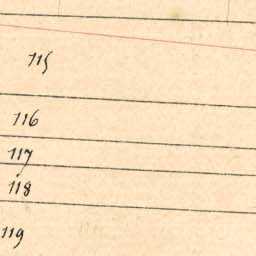 115
116
117
118
119